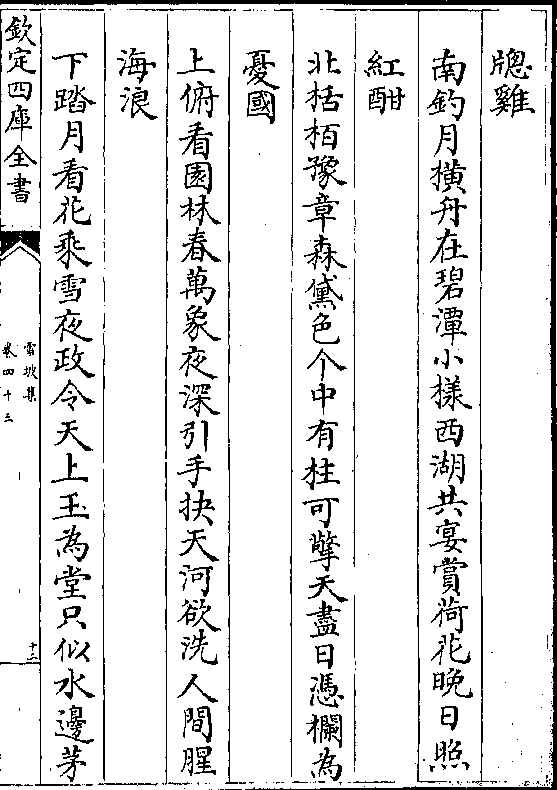 牎雞
南釣月橫舟在碧潭小樣西湖共宴賞荷花晚日照
紅酣
北栝栢豫章森黛色个中有柱可擎天盡日憑欄為
憂國
上俯看園林春萬象夜深引手抉天河欲洗人間腥
海浪
下踏月看花乘雪夜政令天上玉為堂只似水邊茅
欽定四庫全書
雪坡集
卷四十三
十三